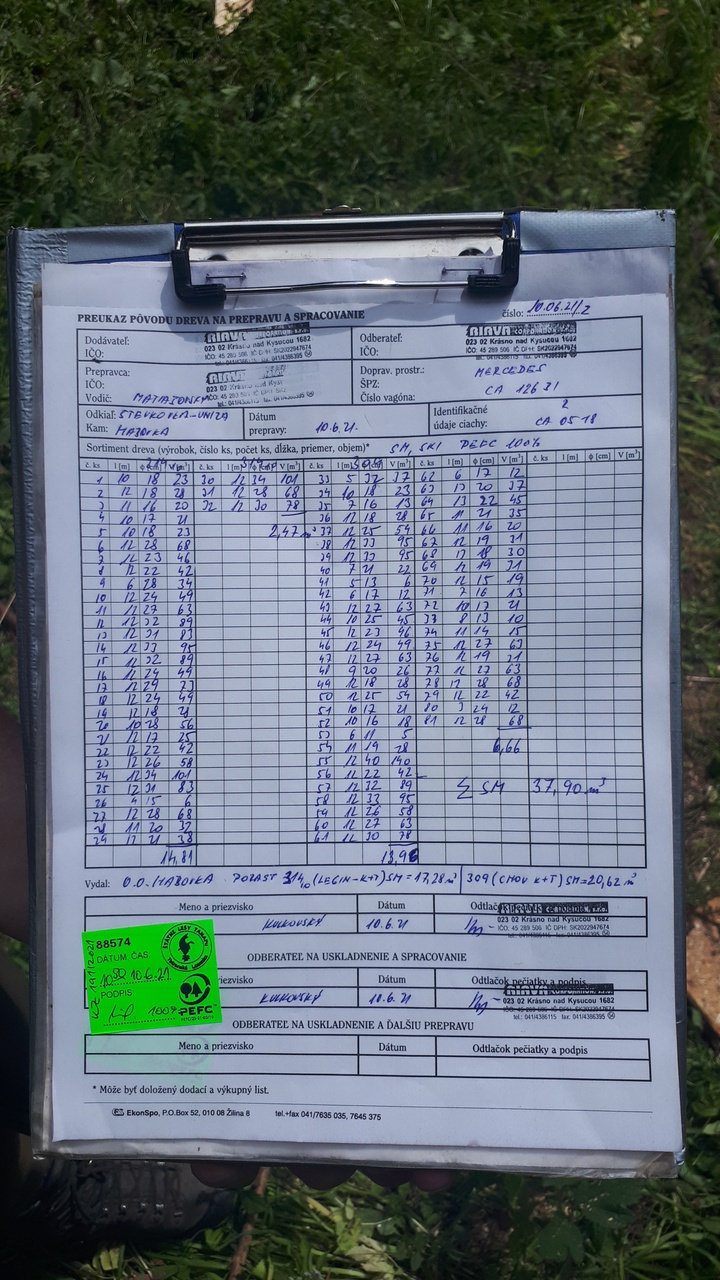 PREUKAZ PÔVODU DREVA NA PREPRAVU A SPRACOVANIE
číslo: 10.06.21/2
Dodávateľ:
IČO:
023 02 Krásno nad Kysucou 1682
Odberateľ:
IČO:
023 02 Krásno nad Kysucou 1682
IČO: 45 289 506 IČ DPH: SK2022947674
Prepravca:
IČO:
Vodič:
Doprav. prostr.: MERCEDES
ŠPZ: CA 126 BI
Číslo vagóna:
Odkiaľ:
Kam: HABOVKA
Dátum
prepravy: 10.6.21.
Identifikačné 2
údaje ciachy: CA 0518
Sortiment dreva (výrobok, číslo ks, počet ks, dĺžka, priemer, objem)* SM, SKI PEFC 100%
č. ks l [m] ϕ [cm] V [m³] č. ks l [m] ϕ [cm] V [m³] č. ks l [m] ϕ [cm] V [m³] č. ks l [m] ϕ [cm] V [m³] č. ks l [m] ϕ [cm] V [m³]
1 10 18 23 30 12 34 101 33 5 32 37 62 6 17 12
2 12 18 28 31 12 28 68 34 10 18 23 63 13 20 37
3 11 16 20 32 12 30 78 35 7 16 13 64 13 22 45
4 10 17 21 36 12 18 28 65 11 21 35
5 10 18 23 2,47 m³ 37 12 25 54 66 11 16 20
6 12 28 68 38 12 33 95 67 12 19 31
7 12 23 46 39 12 33 95 68 12 18 30
8 12 22 42 40 7 21 22 69 12 19 31
9 6 28 34 41 5 13 6 70 12 15 19
10 12 24 49 42 6 17 12 71 7 16 13
11 12 27 63 43 12 27 63 72 10 17 21
12 12 32 89 44 10 25 45 8 13 10
13 12 31 83 45 12 23 46 74 11 14 15
14 12 33 95 46 12 24 49 75 12 27 63
15 12 32 89 47 12 27 63 76 12 19 31
16 12 24 49 48 9 20 26 77 12 27 63
17 12 29 73 49 12 18 28 78 12 28 68
18 12 24 49 50 12 25 54 79 12 22 42
19 12 18 21 51 10 17 21 80 3 24 12
20 10 28 56 52 10 16 18 81 12 28 68
21 12 17 25 53 6 11 5
22 12 22 42 54 11 19 28 6,66
23 12 26 58 55 12 40 140
24 12 34 101 56 12 22 42
25 12 31 83 57 12 32 89 Σ SM 37,90 m³
26 4 15 6 58 12 33 95
27 12 28 68 59 12 26 58
28 11 20 32 60 12 27 63
29 12 21 38 61 12 30 78
14,81 13,96
Vydal: O.O. HABOVKA PORAST 314 (LEGIN-K+T) SM = 17,28 m³ 309 (CHOV K+T) SM = 20,62 m³
Meno a priezvisko Dátum
KULKOVSKÝ 10.6.21
IČO: 45 289 506 IČ DPH: SK2022947674
ODBERATEĽ NA USKLADNENIE A SPRACOVANIE
Dátum Odtlačok pečiatky a podpis
KULKOVSKÝ 10.6.21
023 02 Krásno nad Kysucou 1682
IČO: 45 289 506 IČ DPH: SK2022947674
88574
DÁTUM ČAS
10:50 10.6.21
PODPIS
100% PEFC
ŠTÁTNE LESY TANAPU
ODBERATEĽ NA USKLADNENIE A ĎALŠIU PREPRAVU
Meno a priezvisko Dátum Odtlačok pečiatky a podpis
* Môže byť doložený dodací a výkupný list.
EkonSpo, P.O.Box 52, 010 08 Žilina 8 tel.+fax 041/7635 035, 7645 375